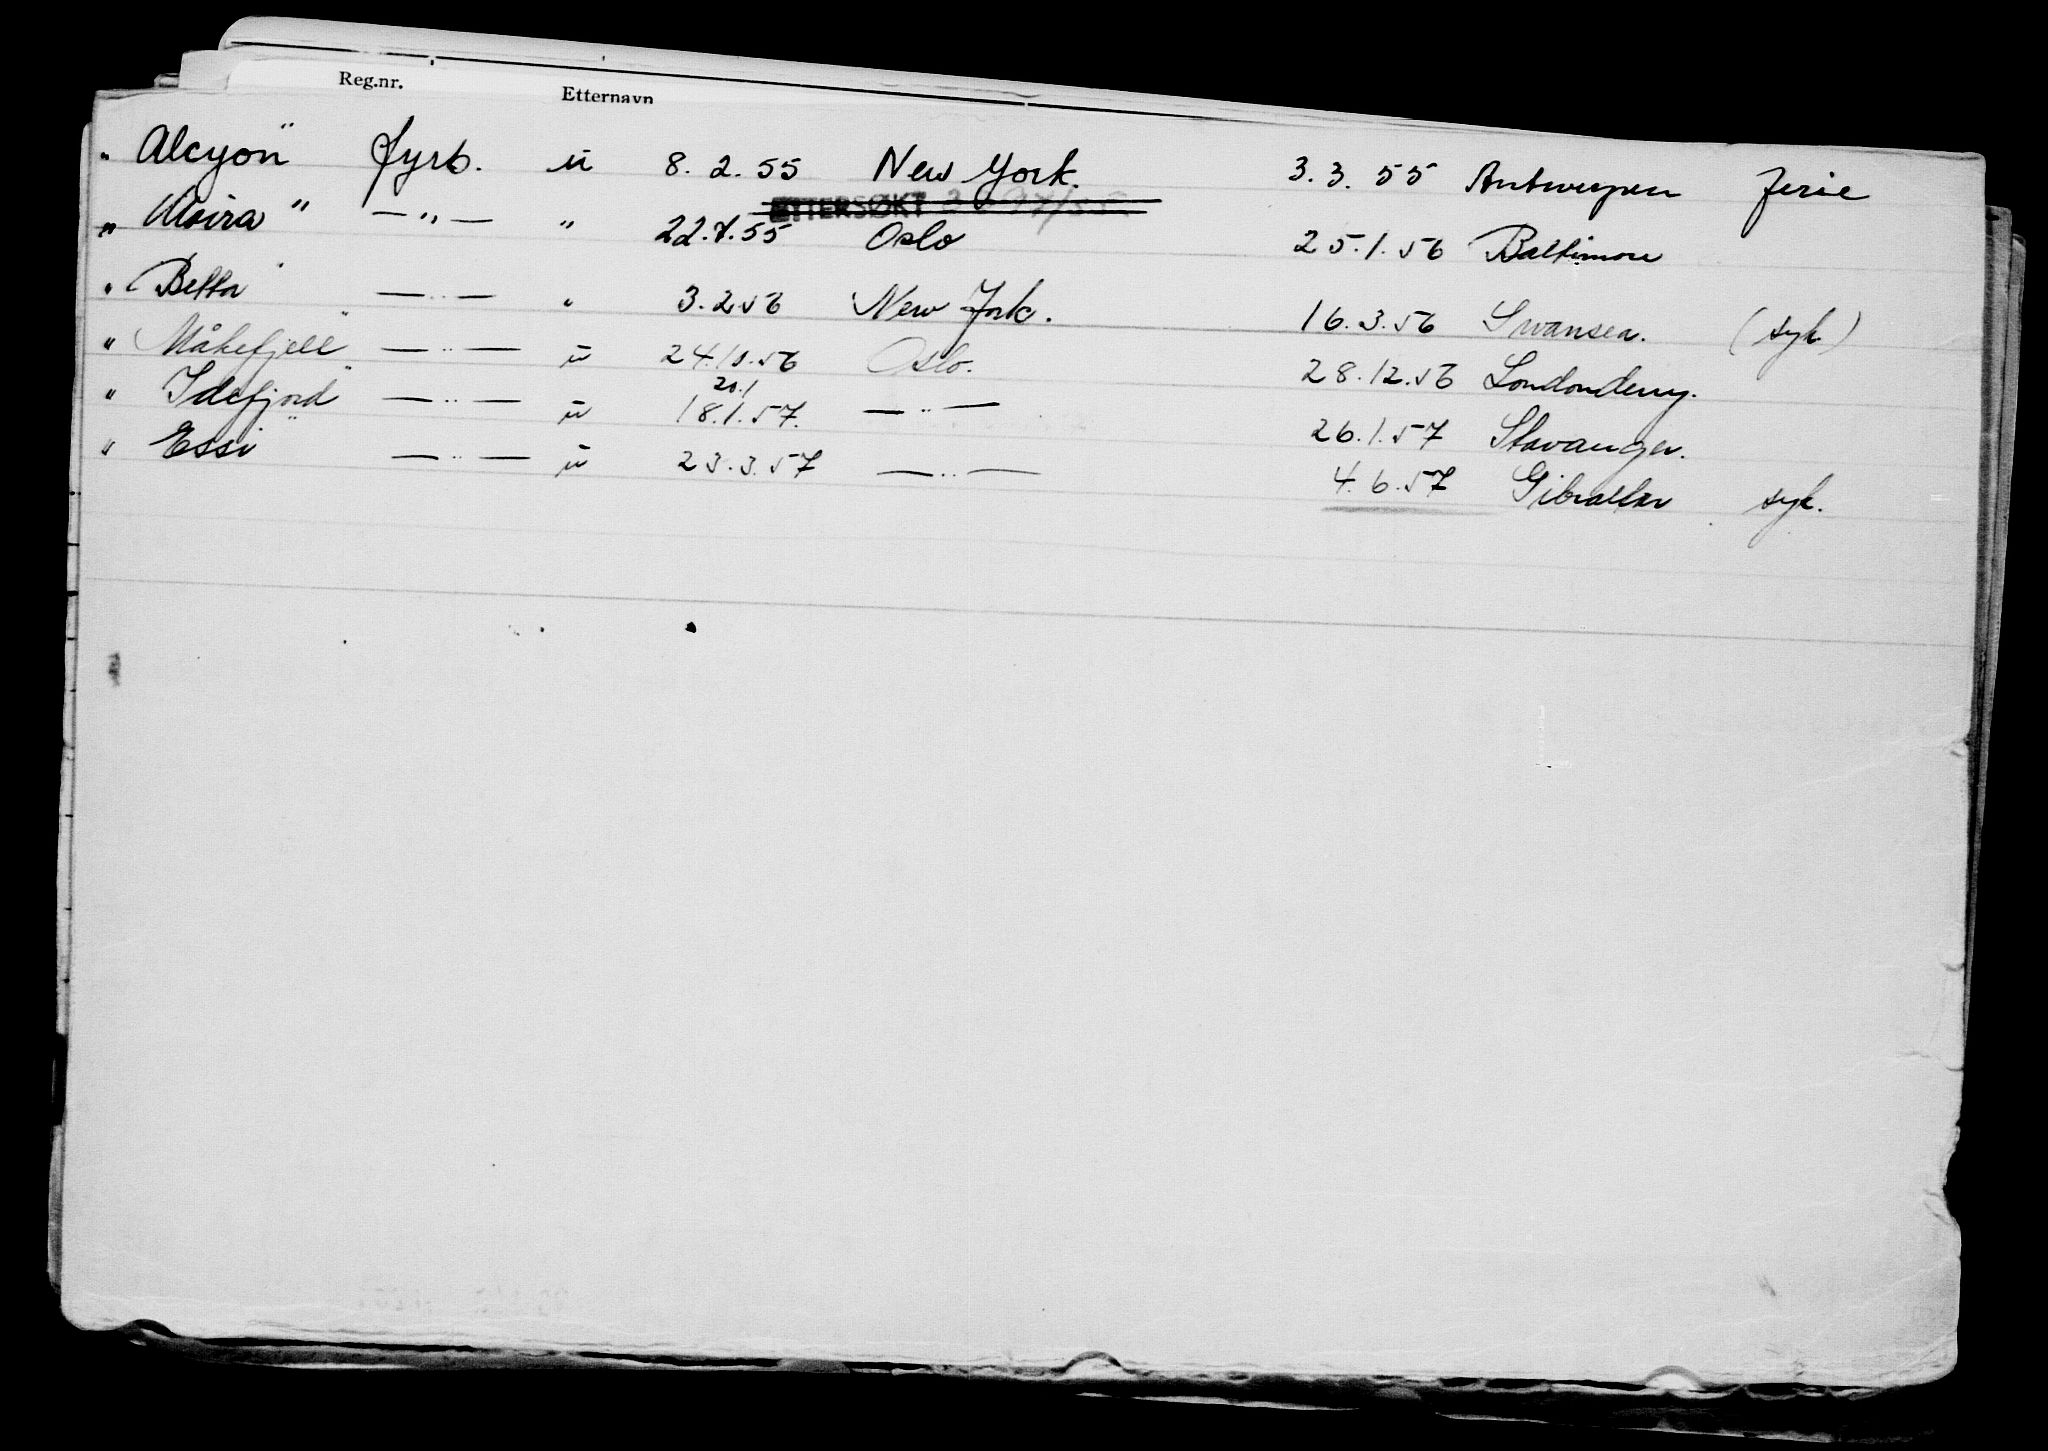 Reg.nr. Etternavn
" Alcyon" fyrb. u 8.2.55 New York. 3.3.55 Antwerpen ferie
ETTERSØKT
" Moira" — " — " 22.7.55 Oslo 25.1.56 Baltimore
" Betta" — " — " 3.2.56 New York. 16.3.56 Swansea. (syk)
" Måkefjell" — " — u 24.10.56 Oslo. 28.12.56 Londonderry.
20.1
" Idefjord" — " — u 18.1.57. — " — 26.1.57 Stavanger.
" Essi" — " — u 23.3.57 — " — 4.6.57 Gibraltar syk.